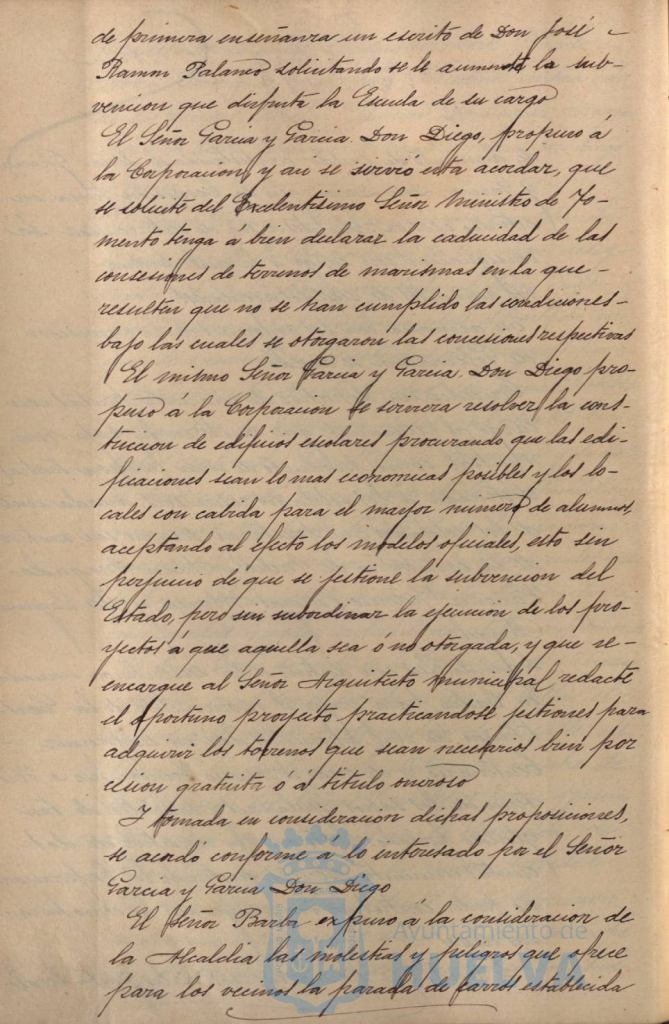 de primera enseñanza un escrito de Don José
Ramon Palanco solicitando se le aumente la sub-
vencion que disfruta la Escuela de su cargo
El Señor Garcia y Garcia Don Diego, propuso á
la Corporacion, y asi se sirvió esta acordar, que
se solicite del Excelentisimo Señor Ministro de Fo-
mento tenga á bien declarar la caducidad de las
concesiones de terrenos de marismas en la que -
resulten que no se han cumplido las condiciones -
bajo las cuales se otorgaron las concesiones respectivas
El mismo Señor Garcia y Garcia Don Diego pro-
puso á la Corporacion se sirviera resolver la cons-
truccion de edificios escolares procurando que las edi-
ficaciones sean lo mas economicas posibles y los lo-
cales con cabida para el mayor número de alumnos,
aceptando al efecto los modelos oficiales, esto sin
perjuicio de que se jestione la subvencion del
Estado, pero sin subordinar la ejecucion de los pro-
yectos á que aquella sea ó no otorgada, y que se -
encargue al Señor Arquitecto municipal redacte
el oportuno proyecto practicandose jestiones para
adquirir los terrenos que sean necesarios bien por
cesion gratuita ó á titulo oneroso
Y tomada en consideracion dichas proposiciones,
se acordó conforme á lo interesado por el Señor
Garcia y Garcia Don Diego
El Señor Barba expuso á la consideracion de
la Alcaldia las molestias y peligros que ofrece
para los vecinos la parada de carros establecida
Ayuntamiento de
HUELVA